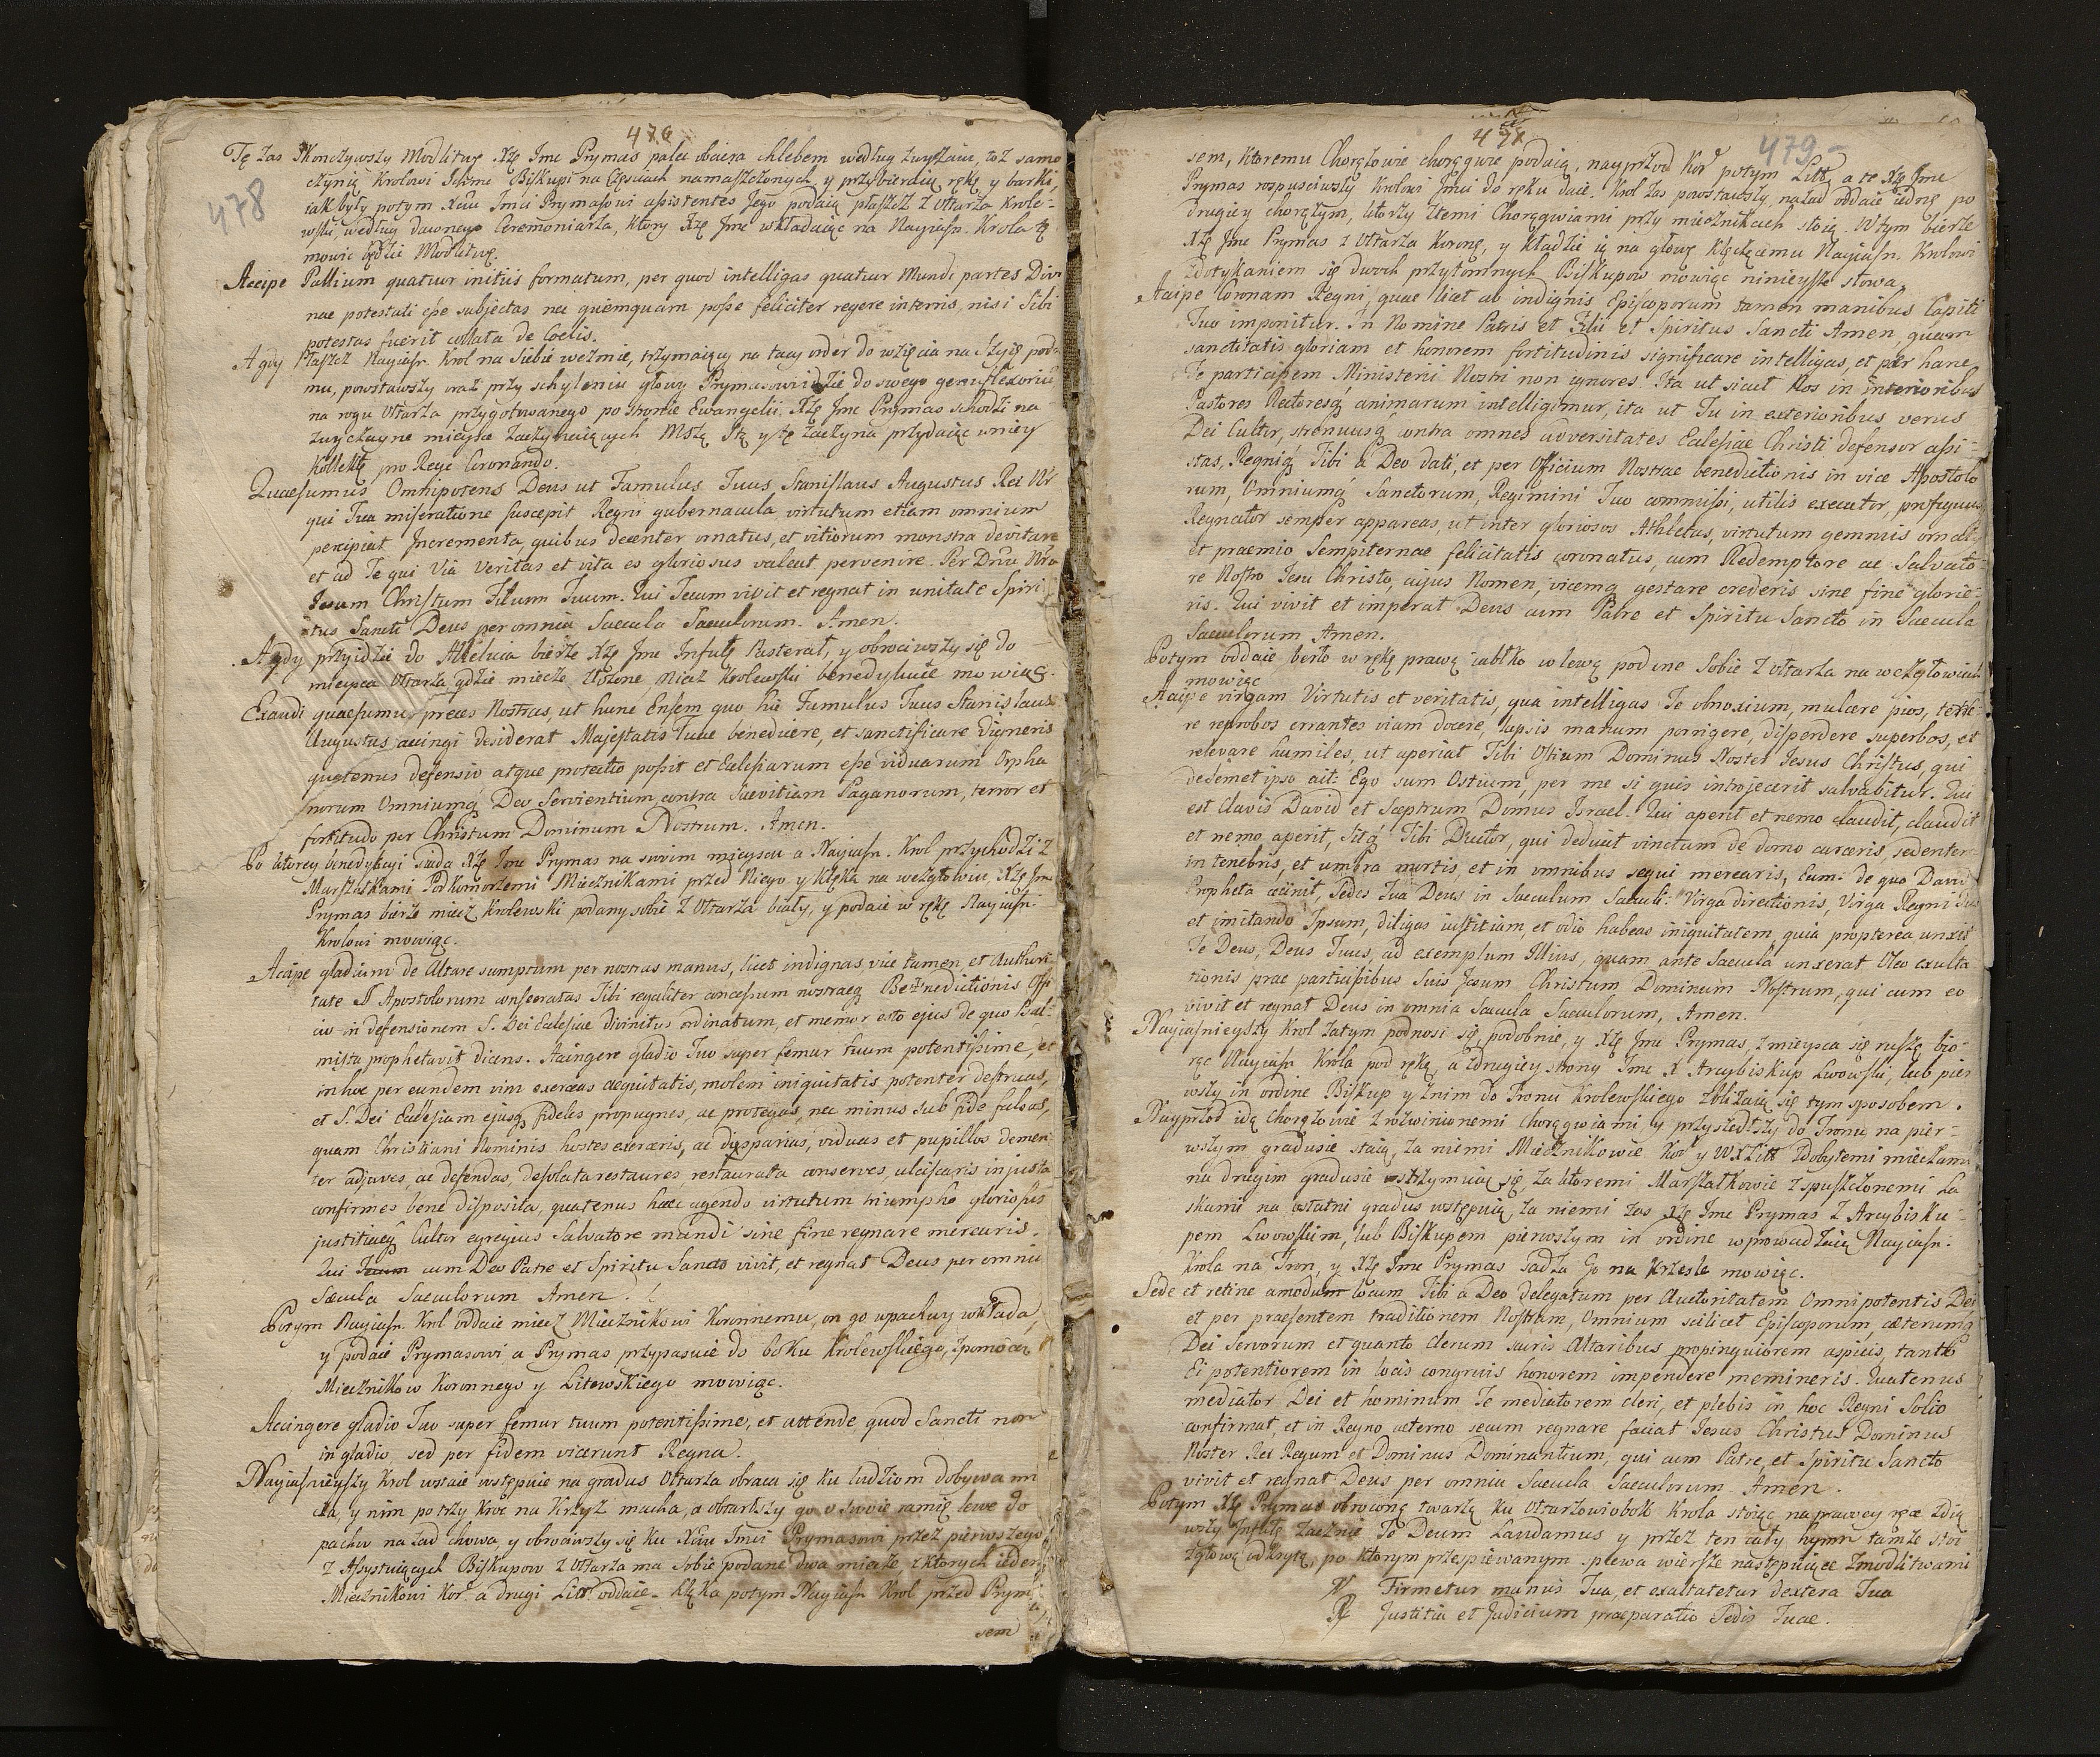 476
478
Tę zas skonczywszy Modlitwę Xżę Jmc Prymas palec obciera chlebem według zwyczaiu, toż samo
czynią Krolowi Ichmc Biskupi na Częsciach namaszczonych y przybieraią rękę y barki,
iak były potym Xciu Jmci Prymasowi assistentes Jego podaią płaszcz z Ołtarza Krole-
wski, według dawnego Ceremoniarza, ktory Xżę Jmc wkładaiąc na Nayiasn. Krola tę
mowic będzie Modlitwę.
Accipe Pallium quatuor initiis formatum, per quod intelligas quatuor Mundi partes Divi
nae potestati esse subjectas nec quemquam posse feliciter regere in terris, nisi Sibi
potestas fuerit collata de Coelis.
A gdy Płaszcz Nayiasn. Krol na siebie wezmie, trzymaiący na tacy order do wzięcia na Szyię pod-
mu, powstawszy oraz przy schyleniu głowy Prymasowi idzie do swego genuflexorium
na rogu Ołtarza przygotowanego po stronie Ewangelii. Xżę Jmc Prymas schodzi na
zwyczayne mieysce zaczynaiących Mszą Stą y tę zaczyna przydaiąc w niey
Kollektę pro Rege Coronando.
Quaesumus Omnipotens Deus ut Famulus Tuus Stanislaus Augustus Rex Nr
qui Tua miseratione suscepit Regni gubernacula, virtutum etiam omnium
percipiat Incrementa, quibus decenter ornatus, et vitiorum monstra devitare
et ad Te qui Via Veritas et vita es gloriosus valeat pervenire. Per Dnm Nrm
Jesum Christum Filium Tuum. Qui Tecum vivit et regnat in unitate Spiri
tus Sancti Deus per omnia Saecula Saeculorum. Amen.
A gdy przyidzie do Alleluia bierze Xżę Jmc Infułę Pasterał, y obrociwszy się do
mieysca Ołtarza gdzie miecze złożone, Miecz Krolewski benedykuie mowiąc.
Exaudi quaesumus preces Nostras, ut hunc Ensem quo hic Famulus Tuus Stanislaus
Augustus accingi desiderat Majestatis Tuae benedicere, et sanctificare digneris
quatenus defensio atque protectio possit et Ecclesiarum esse viduarum Orpha
norum Omniumq Deo Servientium, contra Saevitiam Paganorum, terror et
fortitudo per Christum Dominum Nostrum. Amen.
Po ktorey benedykcyi siada Xżę Jmc Prymas na swoim mieyscu a Nayiasn. Krol przychodzi z
Marszałkami Podkomorzemi Miecznikami przed Niego y klęka na wezgłowiu, Xżę Jmc
Prymas bierze miecz Krolewski podany sobie z Ołtarza biały, y podaie w rękę Nayiasn.
Krolowi mowiąc.
Accipe gladium de Altare sumptum per nostras manus, licet indignas, vice tamen et Authori
tate Apostolorum consecratas Tibi regaliter concessum nostraeq Benedictionis Offi
cio in defensionem S. Dei Ecclesiae Divinitus ordinatum, et memor esto ejus de quo Psal-
mista prophetavit dicens. Accingere gladio Tuo super femur tuum potentissime, et
in hoc per eundem vim exerceas aequitatis, molem iniquitatis potenter destruas,
et S. Dei Ecclesiam ejusq fideles propugnes, ac protegas, nec minus sub fide falsos,
quam Christiani Nominis hostes exerceris, ac disparias, viduas et pupillos clemen
ter adjuves, ac defendas, desolata restaures, restaurata conserves, ulciscaris injusta
confirmes bene disposita, quatenus haec agendo virtutum triumpho gloriosus
justitiaeq Cultor egregius Salvatore mundi sine fine regnare merearis.
Qui cum Deo Patre et Spiritu Sancto vivit, et regnat Deus per omnia
Saecula Saeculorum Amen.
Potym Nayiasn. Krol oddaie miecz Miecznikowi Koronnemu, on go w pochwy wkłada,
y podaie Prymasowi, a Prymas przypasuie do boku Krolewskiego, z pomocą
Miecznikow Koronnego y Litewskiego mowiąc.
Accingere gladio Tuo super femur tuum potentissime, et attende quod Sancti non
in gladio sed per fidem vicerunt Regna.
Nayiasnieyszy Krol wstaie wstępuie na gradus Ołtarza obraca się ku ludziom dobywa mi
cza, y nim po trzy kroć na Krzyż macha, a obtarłszy go o swoie ramię lewe do
pochew nazad chowa, y obrociwszy się ku Xciu Jmci Prymasowi przez pierwszego
z Assystuiących Biskupow z Ołtarza ma sobie podane dwa miecze, z ktorych ieden
Miecznikowi Kor. a drugi Litt. oddaie. klęka potym Nayiasn Krol przed Pryma
sem
479
sem, ktoremu Chorążowie chorągwie podaią, nayprzod Kor potym Litt, a te Xżę Jmc
Prymas rospusciwszy Krolowi Jmci do ręku daie. Krol zas powstawszy, nazad oddaie iedne po
drugiey chorążym, ktorzy z temi Chorągwiami przy miecznikach stoią. W tym bierze
Xżę Jmc Prymas z Ołtarza Koronę, y kładzie ią na głowę Klęczącemu Nayiasn. Krolowi
z dotykaniem się dwoch przytomnych Biskupow mowiąc ninieysze słowa.
Accipe Coronam Regni, quae licet ab indignis Episcoporum tamen manibus Capiti
Tuo imponitur. In Nomine Patris et Filii et Spiritus Sancti Amen, quam
sanctitatis gloriam et honorem fortitudinis significare intelligas, et per hanc
Te participem Ministerii Nostri non ignores. Ita ut sicut Nos in interioribus
Pastores Rectoresq animarum intelligimur, ita ut Tu in exterioribus verus
Dei Cultor, strenuusq contra omnes adversitates Ecclesiae Christi defensor assi-
stas, Regniq Tibi a Deo dati, et per Officium Nostrae benedictionis in vice Apostolo
rum, Omniumq Sanctorum, Regimini Tuo commissi, utilis executor, profuguus
Regnator semper appareas, ut inter gloriosos Athletas, virtutum gemmis ornat,
et praemio Sempiternae felicitatis coronatus, cum Redemptore ac Salvato-
re Nostro Jesu Christo, cujus Nomen, vicemq gestare crederis sine fine glorie-
ris. Qui vivit et imperat Deus cum Patre et Spiritu Sancto in Saecula
Saeculorum Amen.
Potym oddaie berło w rękę prawą iabłko w lewą podane Sobie z ołtarza na wezgłowiach
mowiąc
Accipe virgam Virtutis et veritatis, qua intelligas Te obnoxium, mulcere pios, terre-
re reprobos errantes viam docere, lapsis manum porrigere, disperdere superbos, et
relevare humiles, ut aperiat Tibi Ostium Dominus Noster Jesus Christus, qui
de semet ipso ait: Ego sum Ostium, per me si quis introjecerit salvabitur. Qui
est Clavis David et Sceptrum Domus Israel. Qui aperit et nemo claudit, claudit
et nemo aperit, Sitq Tibi Ductor, qui deducit vinctum de domo carceris, sedentem
in tenebris, et umbra mortis, et in omnibus sequi merearis, Eum: de quo David
Propheta cecinit, Sedes Tua Deus in Saeculum Saeculi: Virga directionis, Virga Regni Tui
et imitando Ipsum, diligas justitiam, et odio habeas iniquitatem, quia propterea unxit
Te Deus, Deus Tuus, ad exemplum Illius, quam ante Saecula unxerat Oleo exulta
tionis prae participibus Suis Jesum Christum Dominum Nostrum, qui cum eo
vivit et regnat Deus in omnia Saecula Saeculorum, Amen.
Nayiasnieyszy Krol zatym podnosi się, podobnie, y Xżę Jmc Prymas, z mieysca się ruszą bio-
rąc Nayiasn. Krola pod rękę, a z drugiey strony Jmc X Arcybiskup Lwowski, lub pier
wszy in ordine Biskup y z nim do Tronu Krolewskiego zbliżaią się tym sposobem.
Nayprzod idą Chorążowie z rozwinionemi chorągwiami y przyszedłszy do Tronu na pier-
wszym gradusie staią, za niemi Miecznikowie Kor y WXLitt z dobytemi mieczami
na drugim gradusie wstrzymuiąc się za ktoremi Marszałkowie z spuszczonemi La
skami na ostatni gradus wstępuią za niemi zas Xżę Jmc Prymas z Arcybisku-
pem Lwowskim, lub Biskupem pierwszym in ordine wprowadzaią Nayiasn.
Krola na Tron, y Xżę Jmc Prymas sadza Go na Krzesle mowiąc.
Sede et retine amodum locum Tibi a Deo delegatum per Auctoritatem Omnipotentis Dei
et per praesentem traditionem Nostram, Omnium scilicet Episcoporum, ceterumq
Dei Servorum et quanto Clerum sacris Altaribus propinquiorem aspicis, tanto
Ei potentiorem in locis congruis honorem impendere memineris. Quatenus
mediator Dei et hominum Te mediatorem cleri, et plebis in hoc Regni Solio
confirmat, et in Regno aeterno secum regnare faciat Jesus Christus Dominus
Noster Rex Regum et Dominus Dominantium, qui cum Patre, et Spiritu Sancto
vivit et regnat Deus per omnia Saecula Saeculorum Amen.
Potym Xżę Prymas obroconą twarzą ku Ołtarzowi obok Krola stoiąc na prawey ręce zdią
wszy Infułę zacznie Te Deum Laudamus y przez ten cały hymn tamże stoi
z głową odkrytą, po ktorym przespiewanym spiewa wiersze następuiące z modlitwami
℣ Firmetur manus Tua, et exaltatetur dextera Tua
℟ Justitia et Judicium praeparatio Sedis Tuae.